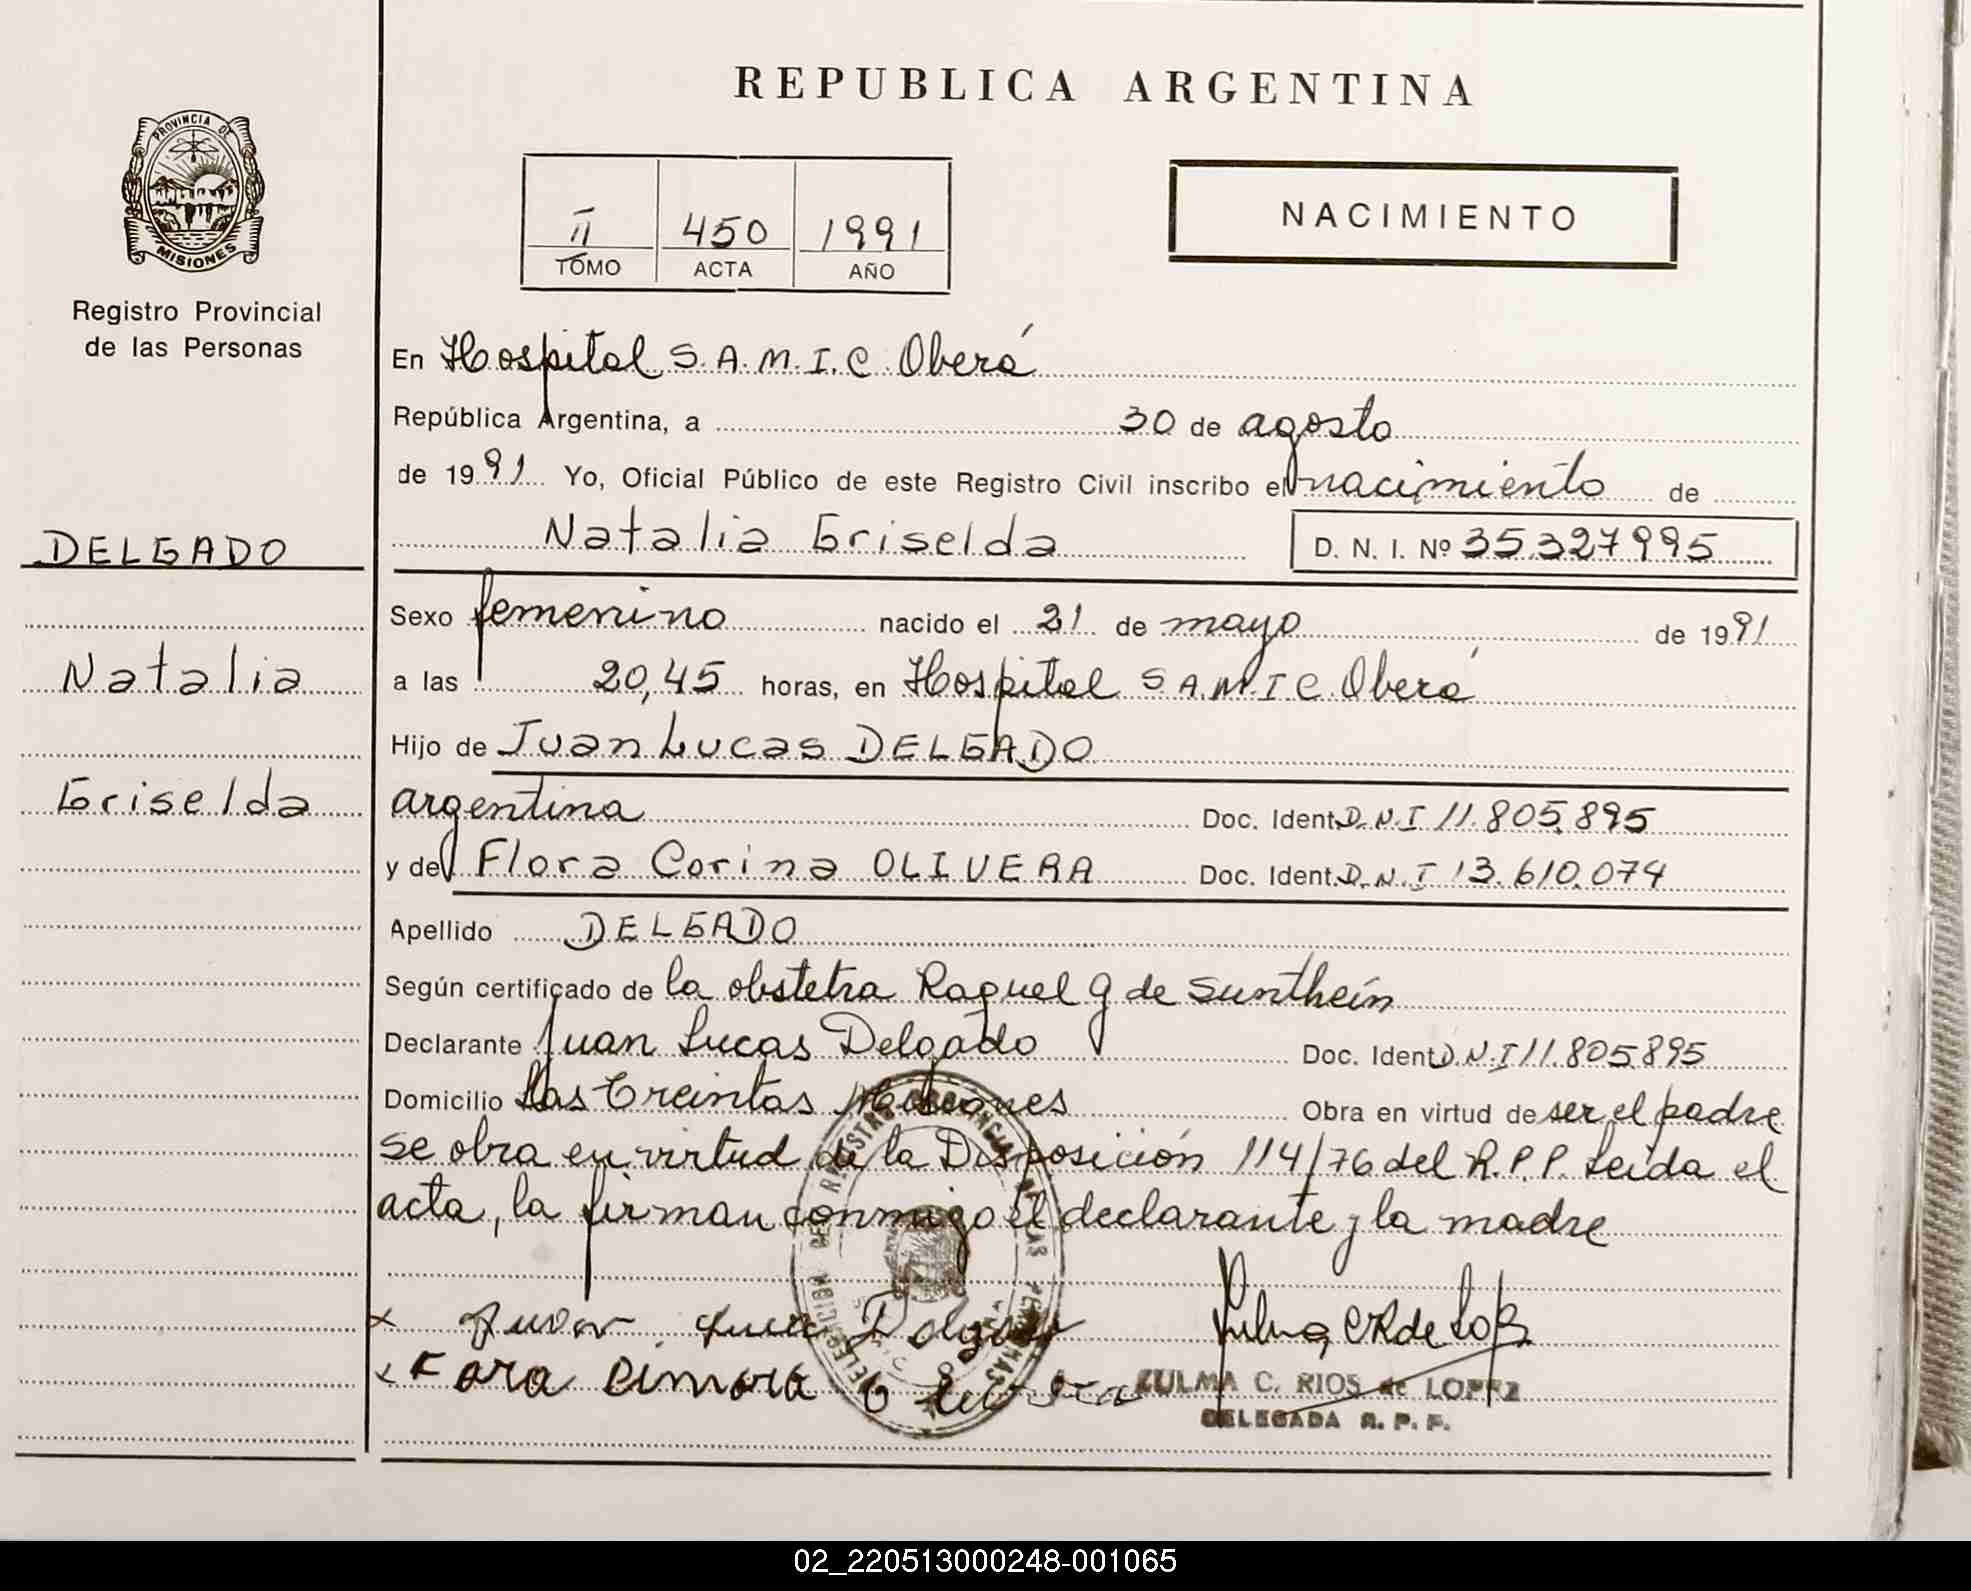 REPUBLICA ARGENTINA
PROVINCIA DE
MISIONES
Registro Provincial
de las Personas
II 450 1991
TOMO ACTA AÑO
NACIMIENTO
En Hospital S.A.M.I.C. Oberá
República Argentina, a 30 de agosto
de 1991 Yo, Oficial Público de este Registro Civil inscribo el nacimiento de
Natalia Griselda D. N. I. Nº 35.327995
DELGADO
Natalia
Griselda
Sexo femenino nacido el 21 de mayo de 1991
a las 20,45 horas, en Hospital S.A.M.I.C Oberá
Hijo de Juan Lucas DELGADO
argentina Doc. Ident. D.N.I 11.805.895
y de Flora Corina OLIVERA Doc. Ident. D.N.I 13.610.074
Apellido DELGADO
Según certificado de la obstetra Raquel G de Sunthein
Declarante Juan Lucas Delgado Doc. Ident D.N.I 11.805895
Domicilio Las Treintas Misiones Obra en virtud de ser el padre
se obra en virtud de la Disposición 114/76 del R.P.P. Leída el
acta, la firman conmigo el declarante y la madre
ZULMA C. RIOS de LOPEZ
DELEGADA R. P. P.
02_220513000248-001065